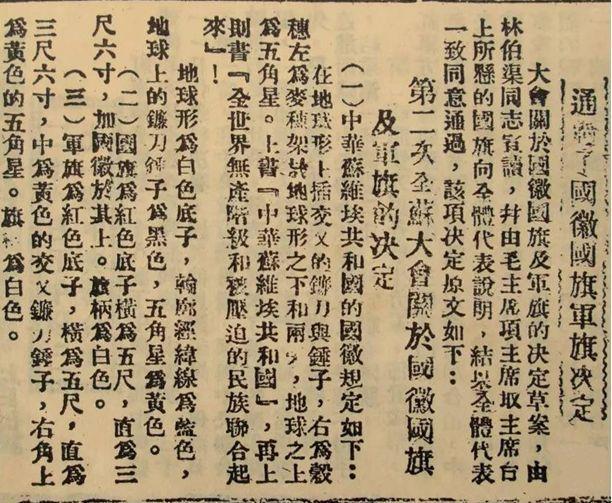 通過了國徽國旗軍旗决定
大會關於國徽國旗及軍旗的决定草案,由
林伯渠同志宣讀,幷由毛主席項主席取主席台
上所懸的國旗向全體代表說明,結果全體代表
一致同意通過,該項决定原文如下:
第二次全蘇大會關於國徽國旗
及軍旗的决定
(一)中華蘇維埃共和國的國徽規定如下:
在地球形上插交叉的鐮刀與錘子,右爲穀
穗左爲麥穗架於地球形之下和兩旁,地球之上
爲五角星。上書『中華蘇維埃共和國』,再上
則書『全世界無產階級和被壓迫的民族聯合起
來』!
地球形爲白色底子,輪廓經緯線爲藍色,
地球上的鐮刀錘子爲黑色,五角星爲黃色。
(二)國旗爲紅色底子橫爲五尺,直爲三
尺六寸,加國徽於其上。旗柄爲白色。
(三)軍旗爲紅色底子,橫爲五尺,直爲
三尺六寸,中爲黃色的交叉鐮刀錘子,右角上
爲黃色的五角星。旗柄爲白色。